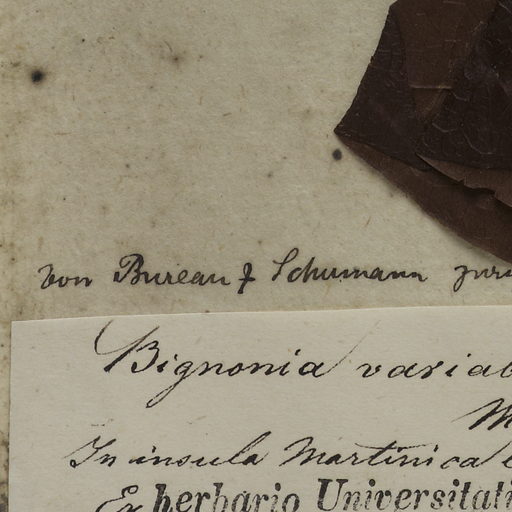 von Bureau & Schumann
Bignonia variab
M
In insula Martinica
Ex herbario Universitati